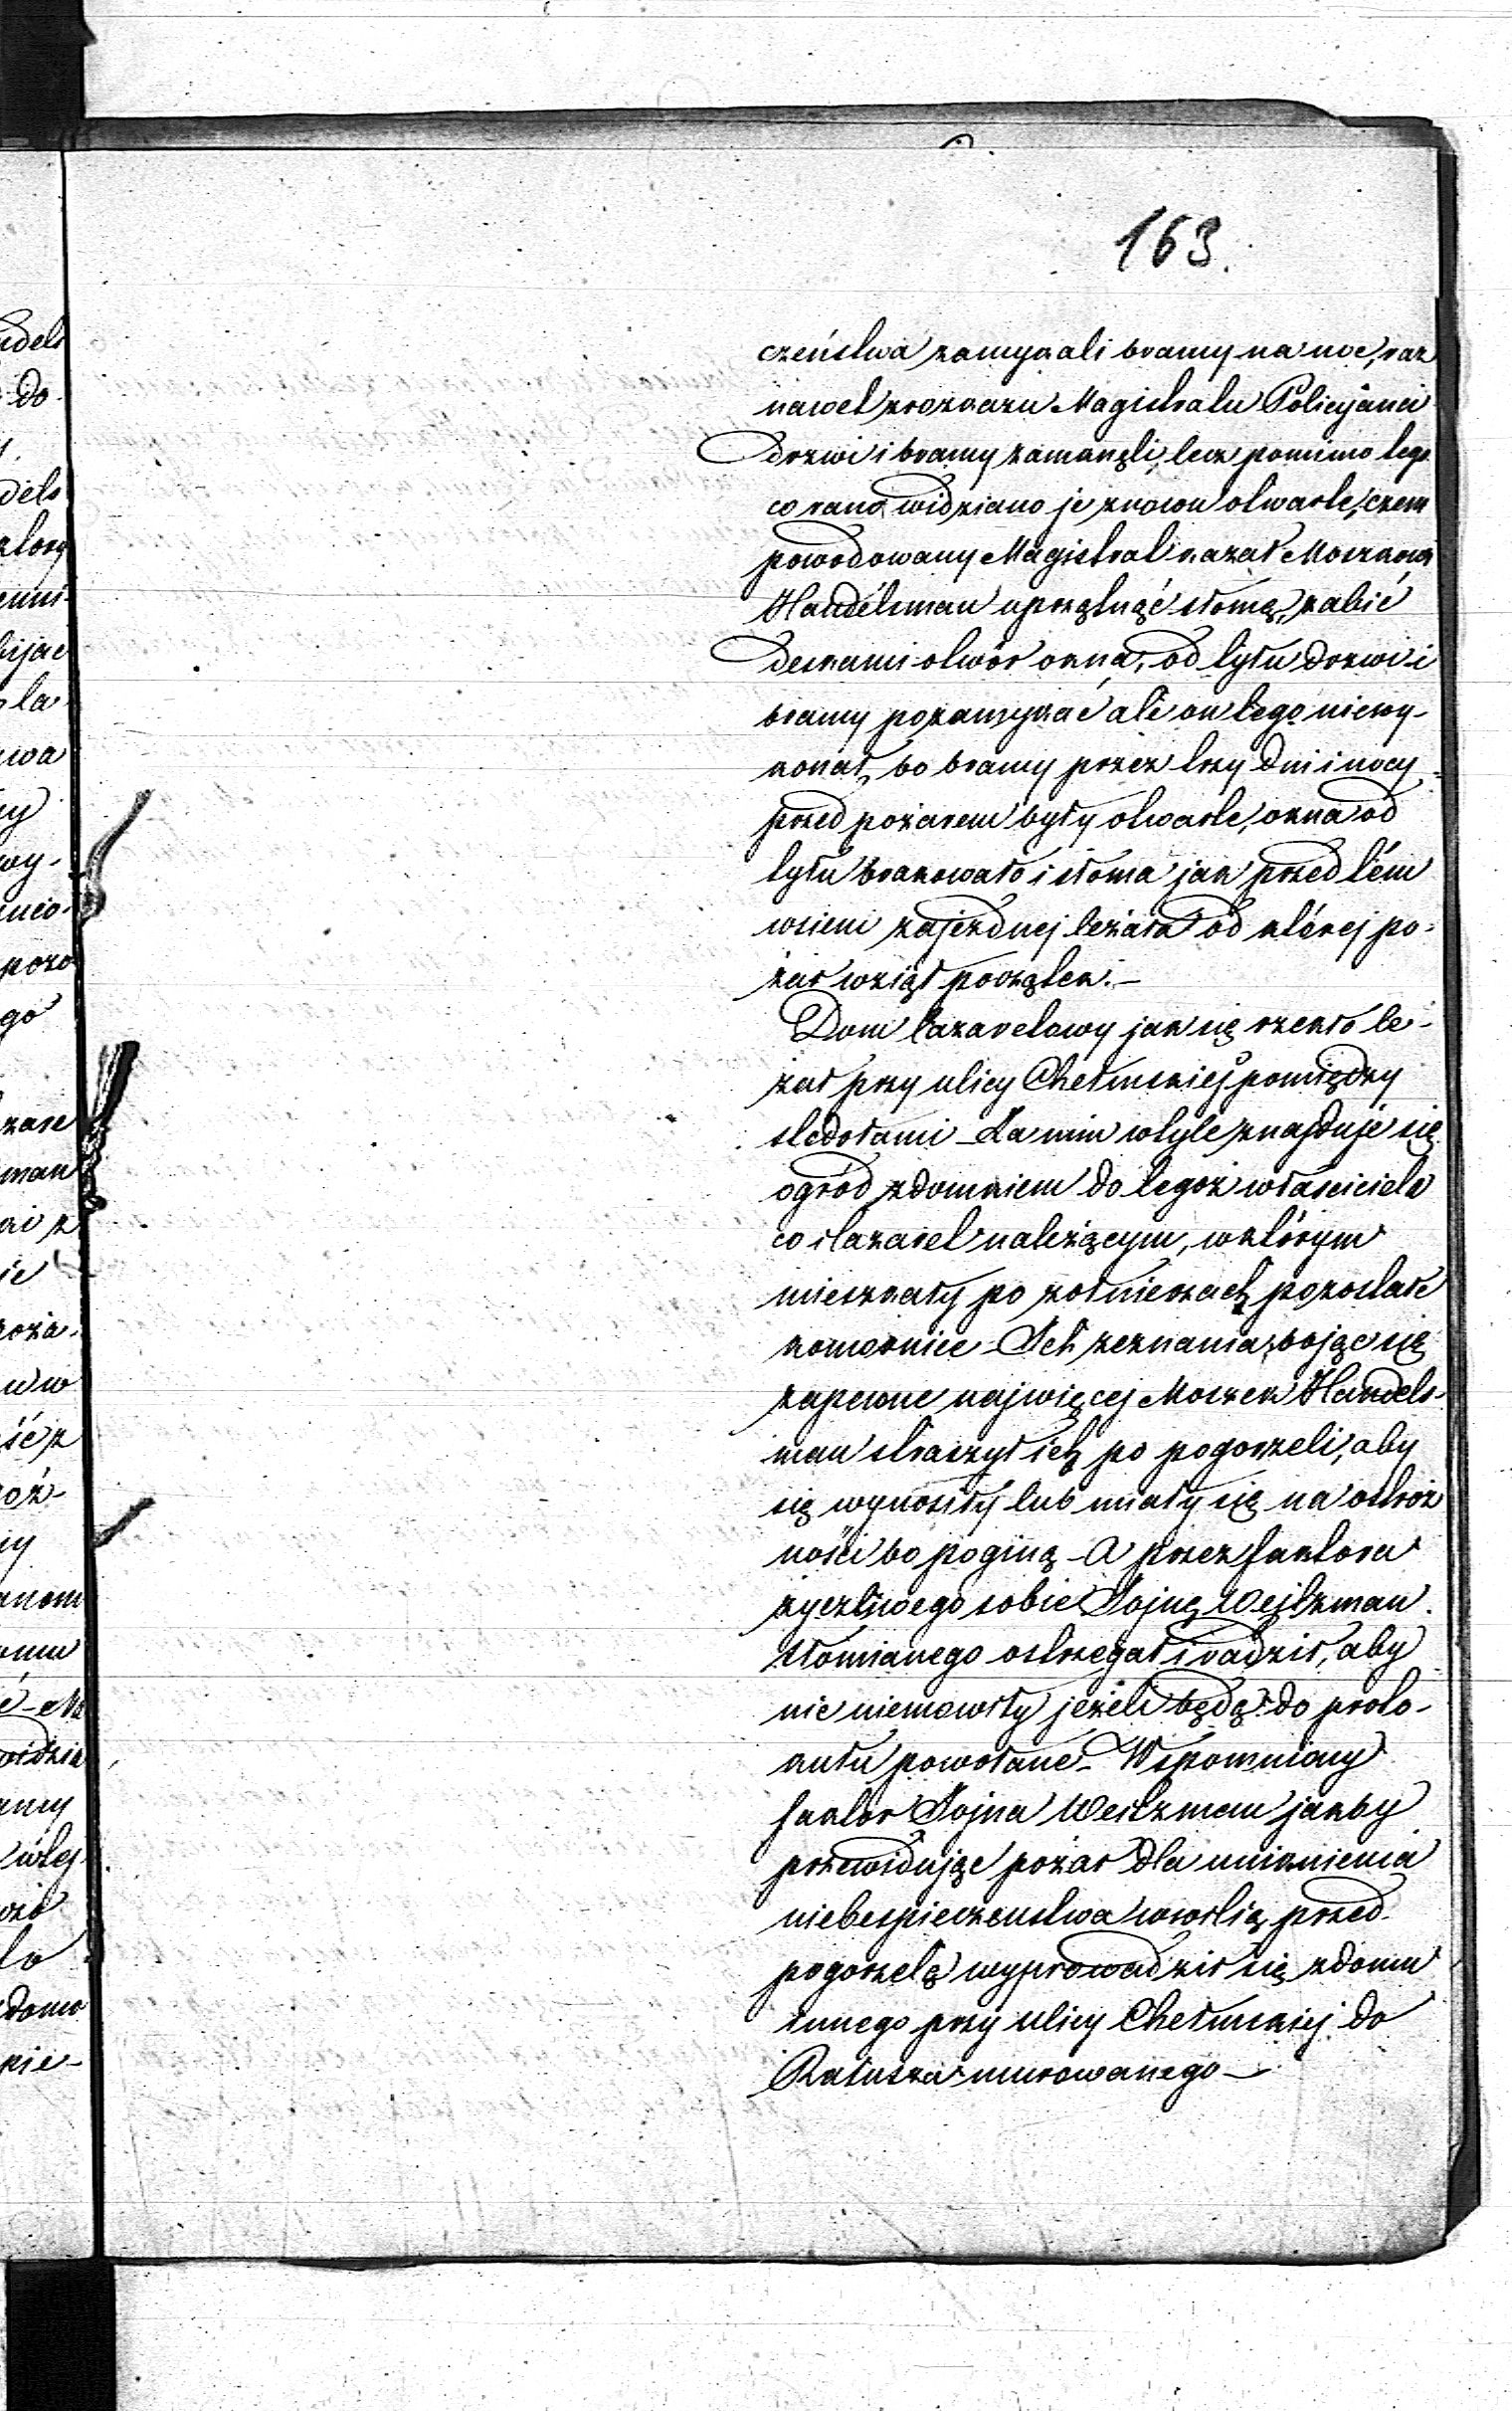 163.
czeństwa zamykali bramy na noc, raz
nawet z rozkazu Magistratu Policyjanci
drzwi i bramy zamknęli, lecz pomimo tego
co rano widziano je znowu otwarte, czem
powodowany Magistrat kazał Moszkowi
Handelsman uprzątnąć słomę, zabić
deskami otwór okna, od tyłu drzwi i
bramy pozamykać ale on tego niewy-
konał, bo bramy przez trzy dni i nocy
przed pożarem były otwarte, okna od
tyłu brakowało i słoma jak przed tém
wsieni zajezdnej leżała od której po-
żar wziął początek.-
Dom lazaretowy jak się rzekło le-
żał przy ulicy Chełmskiej pomiędzy
stodołami - Za nim wtyle znajduje się
ogród z domkiem do tegoż właściciela
co i lazaret należącym, w którym
mieszkały po żołnierzach pozostałe
komornice - Ich zeznania bojąc się
zapewne najwięcej Moszek Handels-
man straszył ich po pogorzeli, aby
się wynosiły lub miały się na ostroż
ności bo poginą - A przez faktora
życzliwego sobie Sojnę Wejtzman
słomianego ostrzegał i radził, aby
nic niemowiły jeżeli będą do proto-
kułu powołane - Wspomniany
faktor Sojna Weitzman jakby
przewidując pożar dla uniknienia
niebespieczenstwa w wilią przed
pogorzelą wyprowadził się z domu
innego przy ulicy Chełmskiej do
Ratusza murowanego -